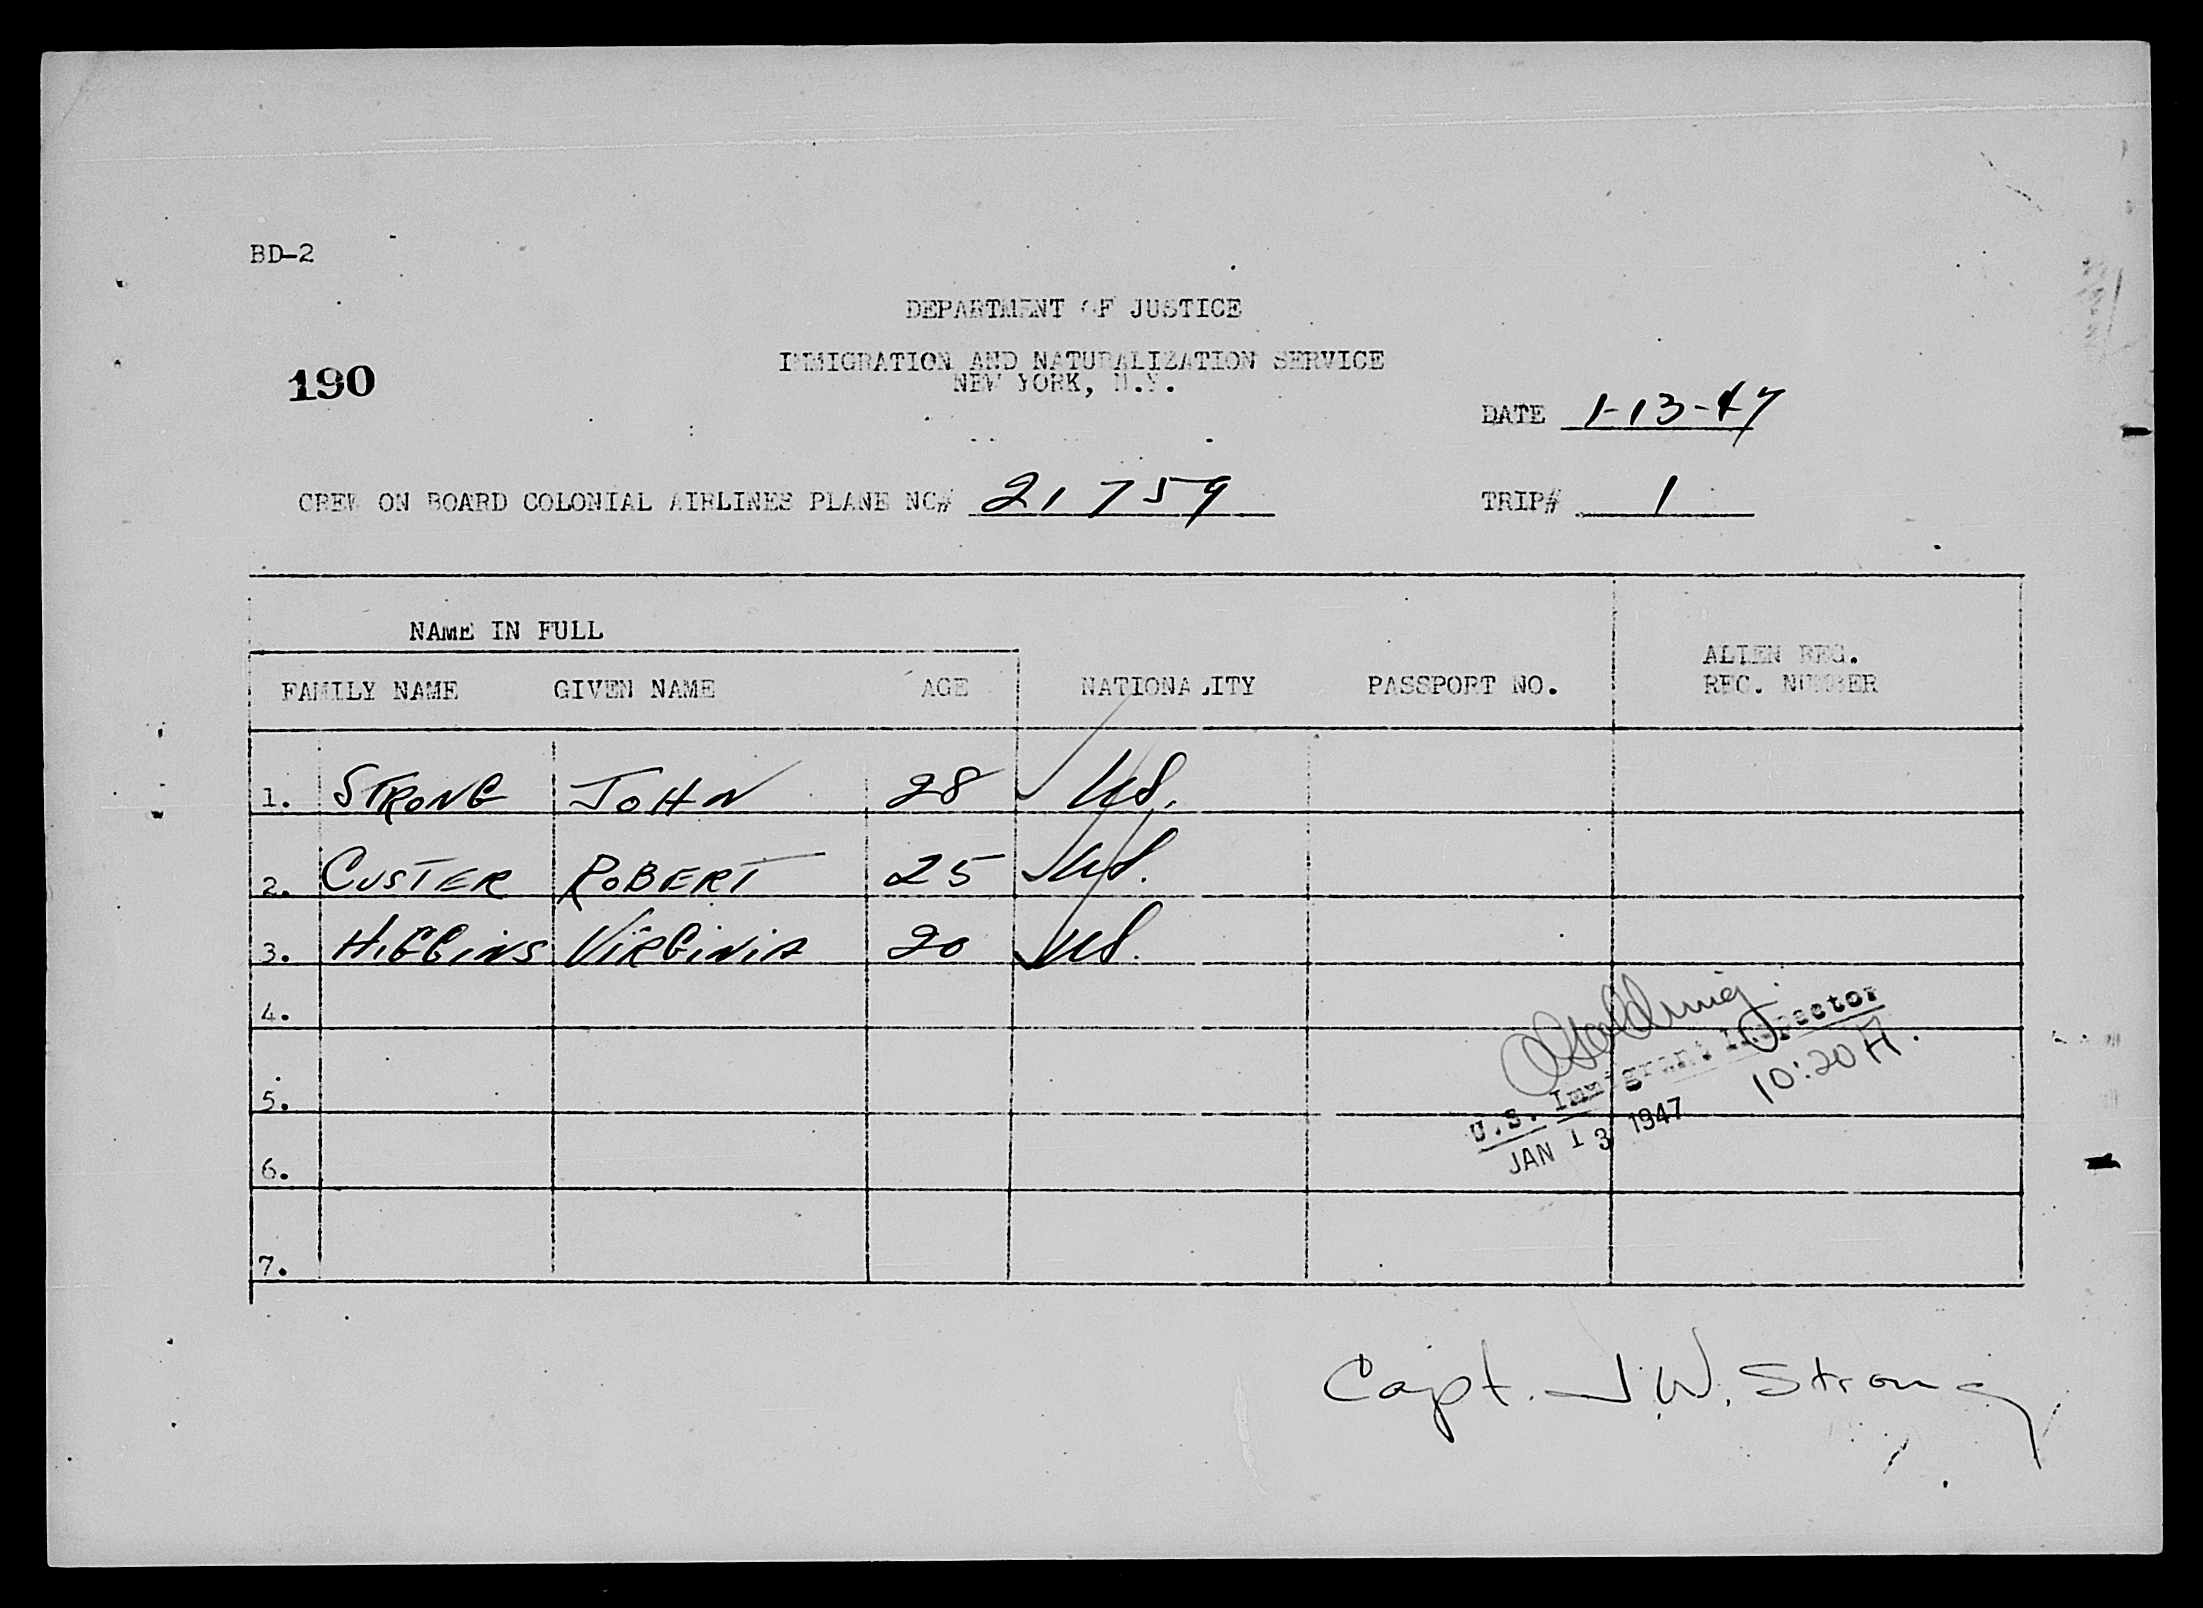 BD-2
DEPARTMENT OF JUSTICE
190
IMMIGRATION AND NATURALIZATION SERVICE
NEW YORK, N.Y.
DATE 1-13-47
CREW ON BOARD COLONIAL AIRLINES PLANE NO# 21759 TRIP# 1
NAME IN FULL
FAMILY NAME GIVEN NAME AGE NATIONALITY PASSPORT NO. ALIEN REG.
REC. NUMBER
1. STRONG JOHN 28 US.
2. CUSTER ROBERT 25 US.
3. HIGGINS VIRGINIA 20 US.
4.
5.
6.
7.
Golding
U.S. Immigrant Inspector
10:20 A.
JAN 13 1947
Capt. J.W. Strong